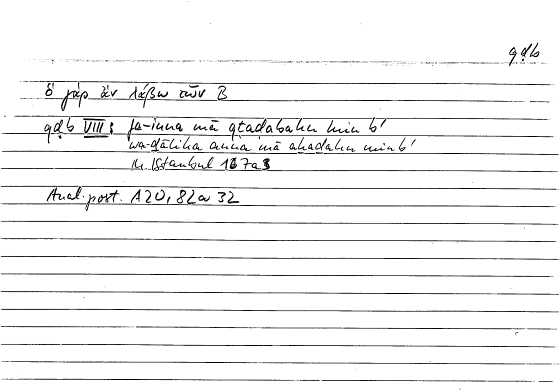 qḍb
ὃ γὰρ ἂν λάβω τῶν Β
qḍb VIII: fa-inna mā qtaḍabahu min b'
wa-ḏālika anna mā aḫaḏahu min b'
in Istanbul 167a8
Anal. post. A 20, 82a 32